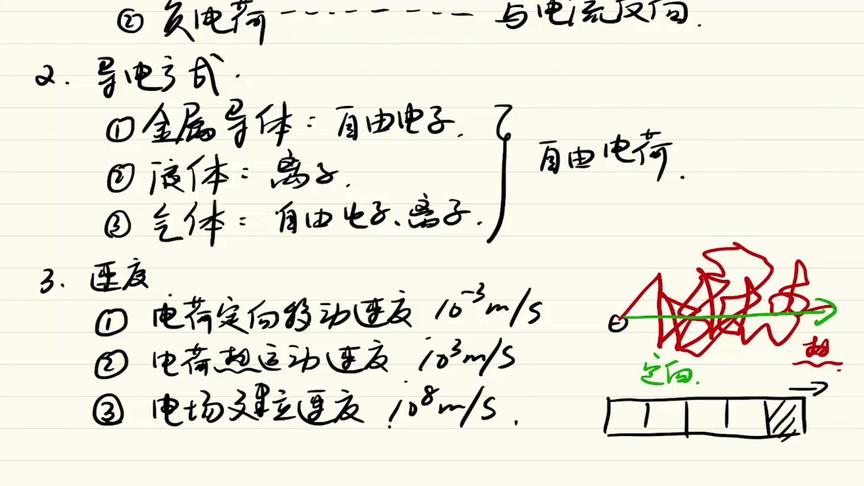 ② 负电荷 -------- 与电流反向.
2. 导电方式.
① 金属导体: 自由电子.
② 液体: 离子.
③ 气体: 自由电子、离子.
自由电荷.
3. 速度
① 电荷定向移动速度 10⁻³m/s
② 电荷热运动速度 10³m/s
③ 电场建立速度 10⁸m/s.
热
定向.